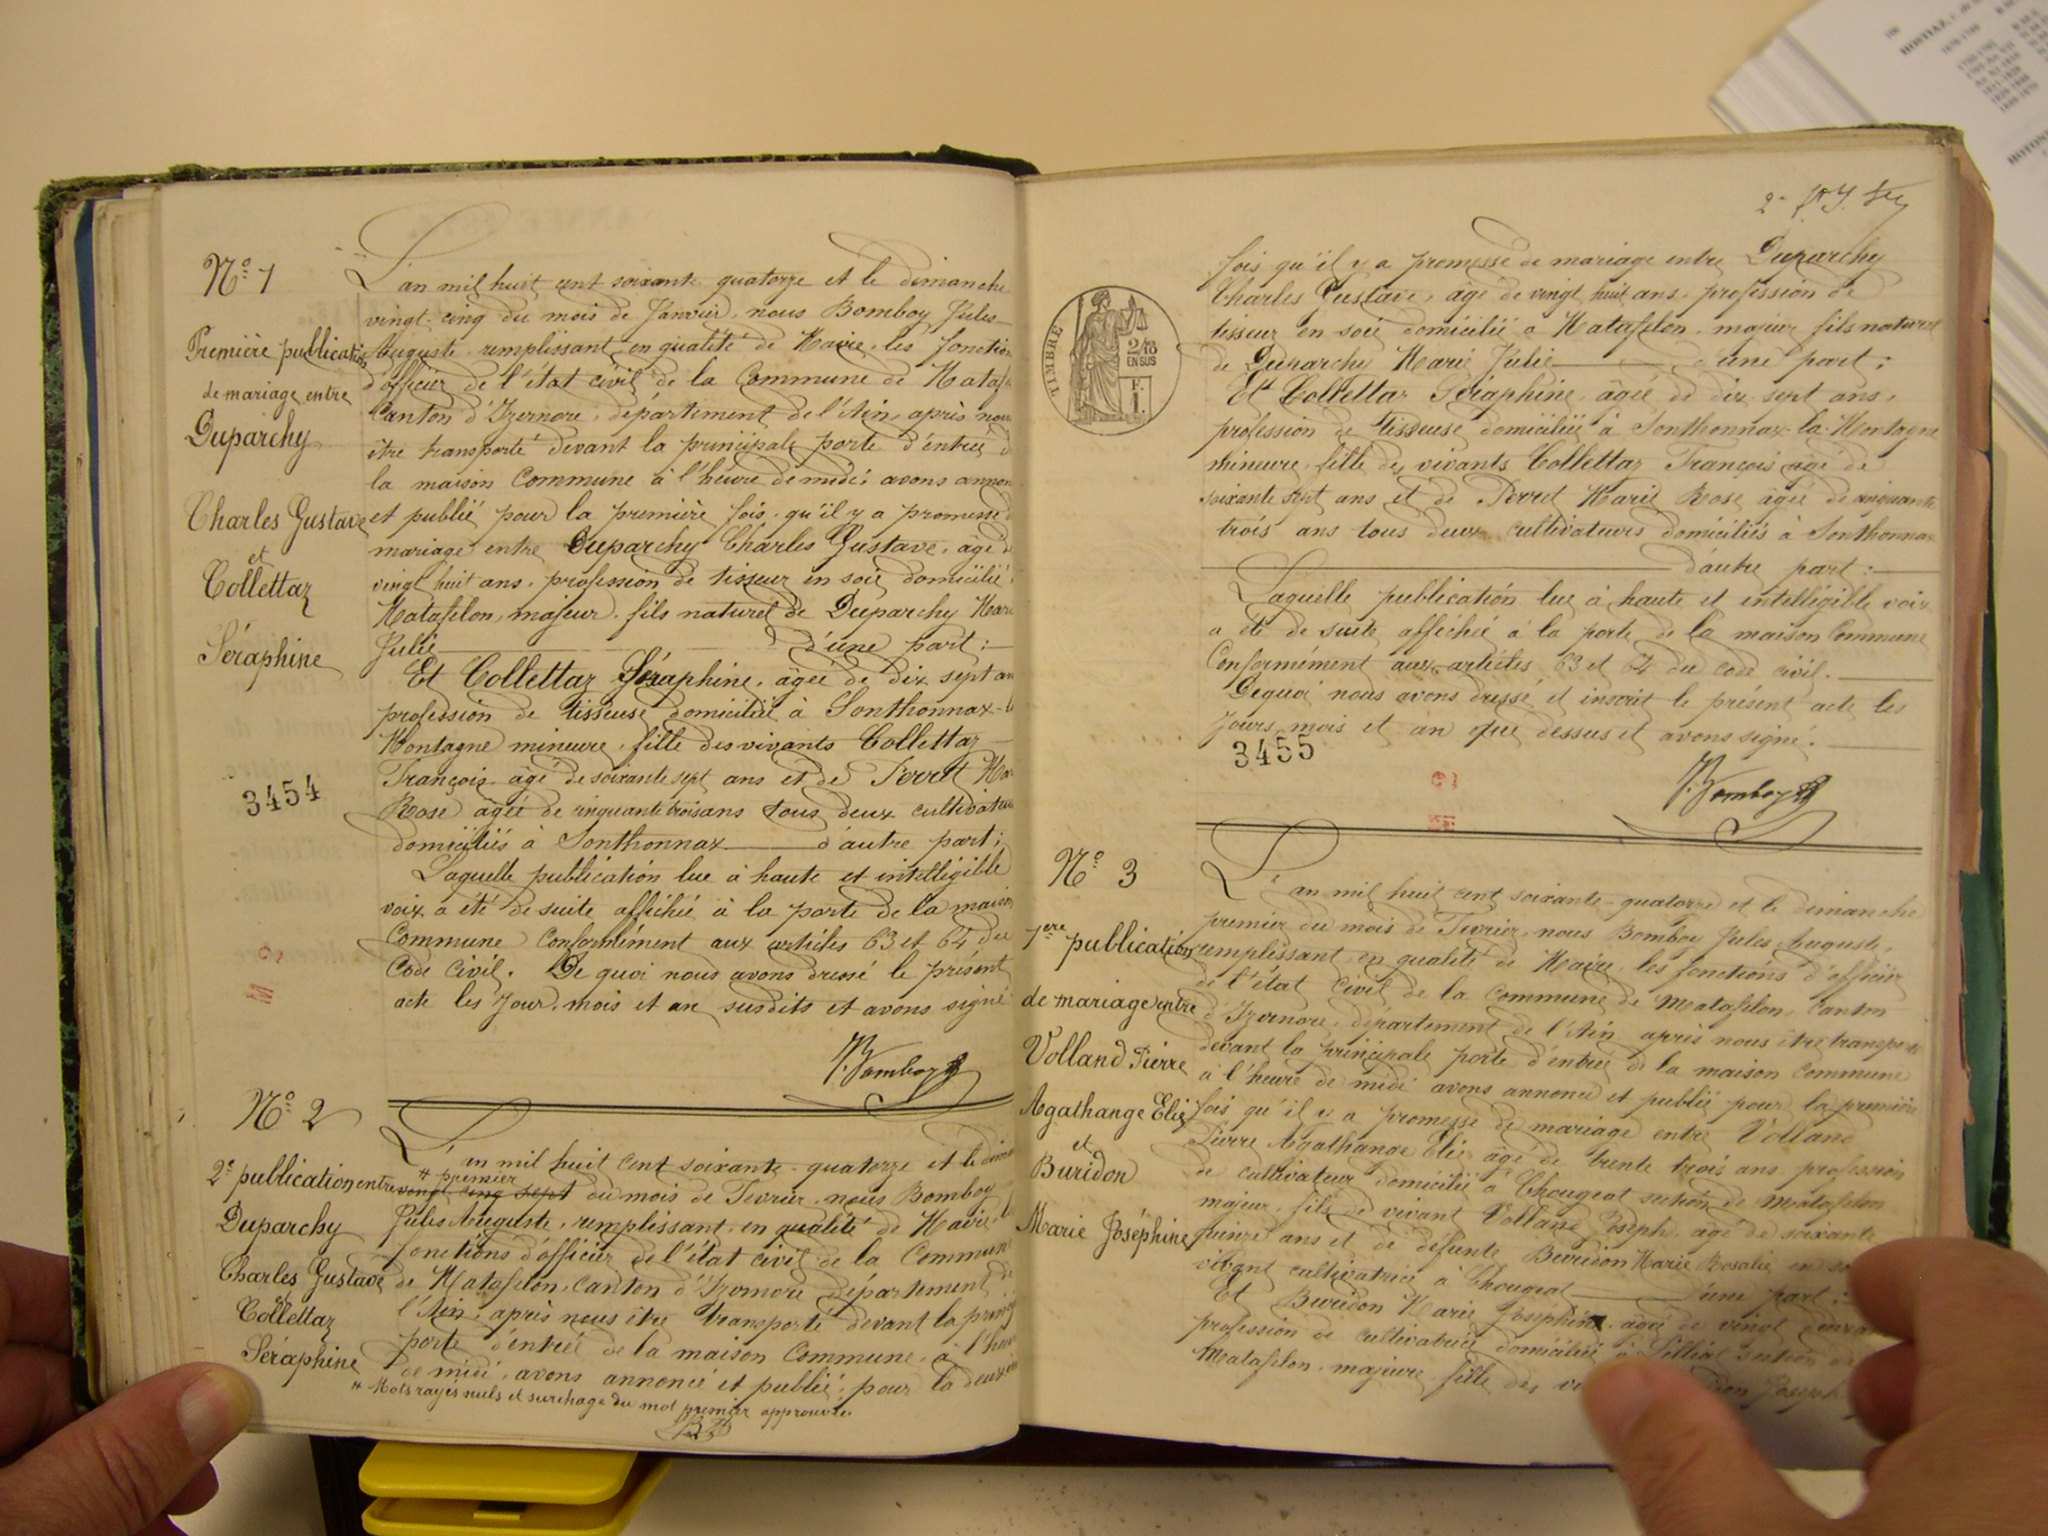 Nº 1
Première publication
de mariage entre
Duparchy
Charles Gustave
et
Collettaz
Séraphine
3454
L'an mil huit cent soixante quatorze et le dimanche
vingt-cinq du mois de Janvier, nous Bomboy Jules
Auguste, remplissant en qualité de Maire, les fonction
d'officier de l'état civil de la Commune de Mataf
Canton d'Izernore, département de l'Ain, après nous
être transporté devant la principale porte d'entrée d
la maison Commune à l'heure de midi; avons annon
et publié pour la première fois qu'il y a promesse d
mariage entre Duparchy Charles Gustave, âgé d
vingt huit ans, profession de tisseur en soie domicilié
Matafelon, majeur, fils naturel de Duparchy Mari
Julie d'une part;
Et Collettaz Séraphine, âgée de dix sept an
profession de tisseuse domiciliée à Sonthonnax-l
Montagne mineure, fille des vivants Collettaz
François âgé de soixante sept ans et de Perret Mar
Rose âgée de cinquante trois ans tous deux cultivateu
domiciliés à Sonthonnax d'autre part;
Laquelle publication lue à haute et intelligible
voix a été de suite affichée à la porte de la maison
Commune Conformément aux articles 63 et 64 du
Code Civil. De quoi nous avons dressé le présent
acte les Jour, mois et an susdits et avons signé
J. Bomboy
Nº 2
2e publication entre
Duparchy
Charles Gustave
et
Collettaz
Séraphine
L'an mil huit cent soixante-quatorze et le diman
# premier
vingt cinq sept du mois de Février, nous Bomboy
Jules Auguste, remplissant, en qualité de Maire, l
fonctions d'officier de l'état civil de la Commun
de Matafelon, Canton d'Izernore département de
l'Ain, après nous être transporté devant la princi
porte d'entrée de la maison Commune, à l'heu
de midi, avons annoncé et publié, pour la deuxiè
# Mots rayés nuls et surchage du mot premier approuvée.
2e
TIMBRE
2/10
EN SUS
F.
1.
fois qu'il y a promesse de mariage entre Duparchy
Charles Gustave, âgé de vingt huit ans, profession de
tisseur en soie domicilié à Matafelon, majeur fils naturel
de Duparchy Marie Julie d'une part;
Et Collettaz Séraphine, âgée de dix-sept ans,
profession de tisseuse domiciliée à Sonthonnax-la-Montagne
mineure, fille des vivants Collettaz François âgé de
soixante sept ans et de Perret Marie Rose âgée de cinquante
trois ans tous deux cultivateurs domiciliés à Sonthonnax
d'autre part;
Laquelle publication lue à haute et intelligible voix
a été de suite affichée à la porte de la maison Commune
Conformément aux articles 63 et 64 du code civil.
De quoi nous avons dressé et inscrit le présent acte les
Jours, mois et an que dessus et avons signé.
3455
J. Bomboy
Nº 3
1ere publication
de mariage entre
Volland Pierre
Agathange Elie
et
Buridon
Marie Joséphine
L'an mil huit cent soixante-quatorze et le dimanche
premier du mois de Février, nous Bomboy Jules Auguste,
remplissant, en qualité de Maire, les fonctions d'officier
de l'état civil de la commune de Matafelon, canton
d'Izernore, département de l'Ain, après nous être transporté
devant la principale porte d'entrée de la maison commune
à l'heure de midi avons annoncé et publié pour la première
fois qu'il y a promesse de mariage entre Volland
Pierre Agathange Elie âgé de trente trois ans profession
de cultivateur domicilié à Chougeat section de Matafelon
majeur, fils de vivant Volland Joseph, âgé de soixante
quinze ans et de défunte Buridon Marie Rosalie en so
vivant cultivatrice à Chougeat d'une part;
Et Buridon Marie Joséphine, âgée de vingt
profession de cultivatrice domiciliée à section de
Matafelon, majeure, fille des Joseph